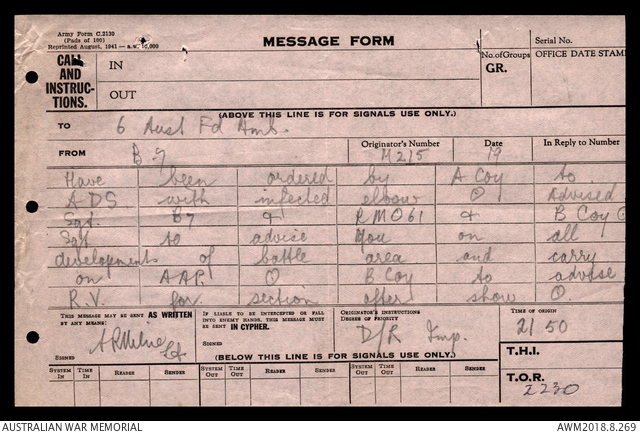 Army Form C.2130
(Pads of 100)
Reprinted August, 1941
MESSAGE FORM
Serial No.
CALL AND INSTRUCTIONS.
IN
OUT
No. of Groups
GR.
OFFICE DATE STAM
(ABOVE THIS LINE IS FOR SIGNALS USE ONLY.)
TO 6 Aust Fd Amb.
FROM B7
Originator's Number M215
Date 19
In Reply to Number
Have been ordered by A Coy to
ADS with infected elbow O Advised
Sgt. B7 & RMO61 & B Coy O
Sgt to advise you on all
developments of battle area and carry
on AAP. O B Coy to advise
R.V. for section after show O.
THIS MESSAGE MAY BE SENT AS WRITTEN BY ANY MEANS.
IF LIABLE TO BE INTERCEPTED OR FALL INTO ENEMY HANDS, THIS MESSAGE MUST BE SENT IN CYPHER.
ORIGINATOR'S INSTRUCTIONS DEGREE OF PRIORITY
D/R Imp.
TIME OF ORIGIN
2150
SIGNED A R Milne
SIGNED
(BELOW THIS LINE IS FOR SIGNALS USE ONLY.)
T.H.I.
SYSTEM IN TIME IN READER SENDER SYSTEM OUT TIME OUT READER SENDER SYSTEM OUT TIME OUT READER SENDER
T.O.R.
2230
AUSTRALIAN WAR MEMORIAL
AWM2018.8.269